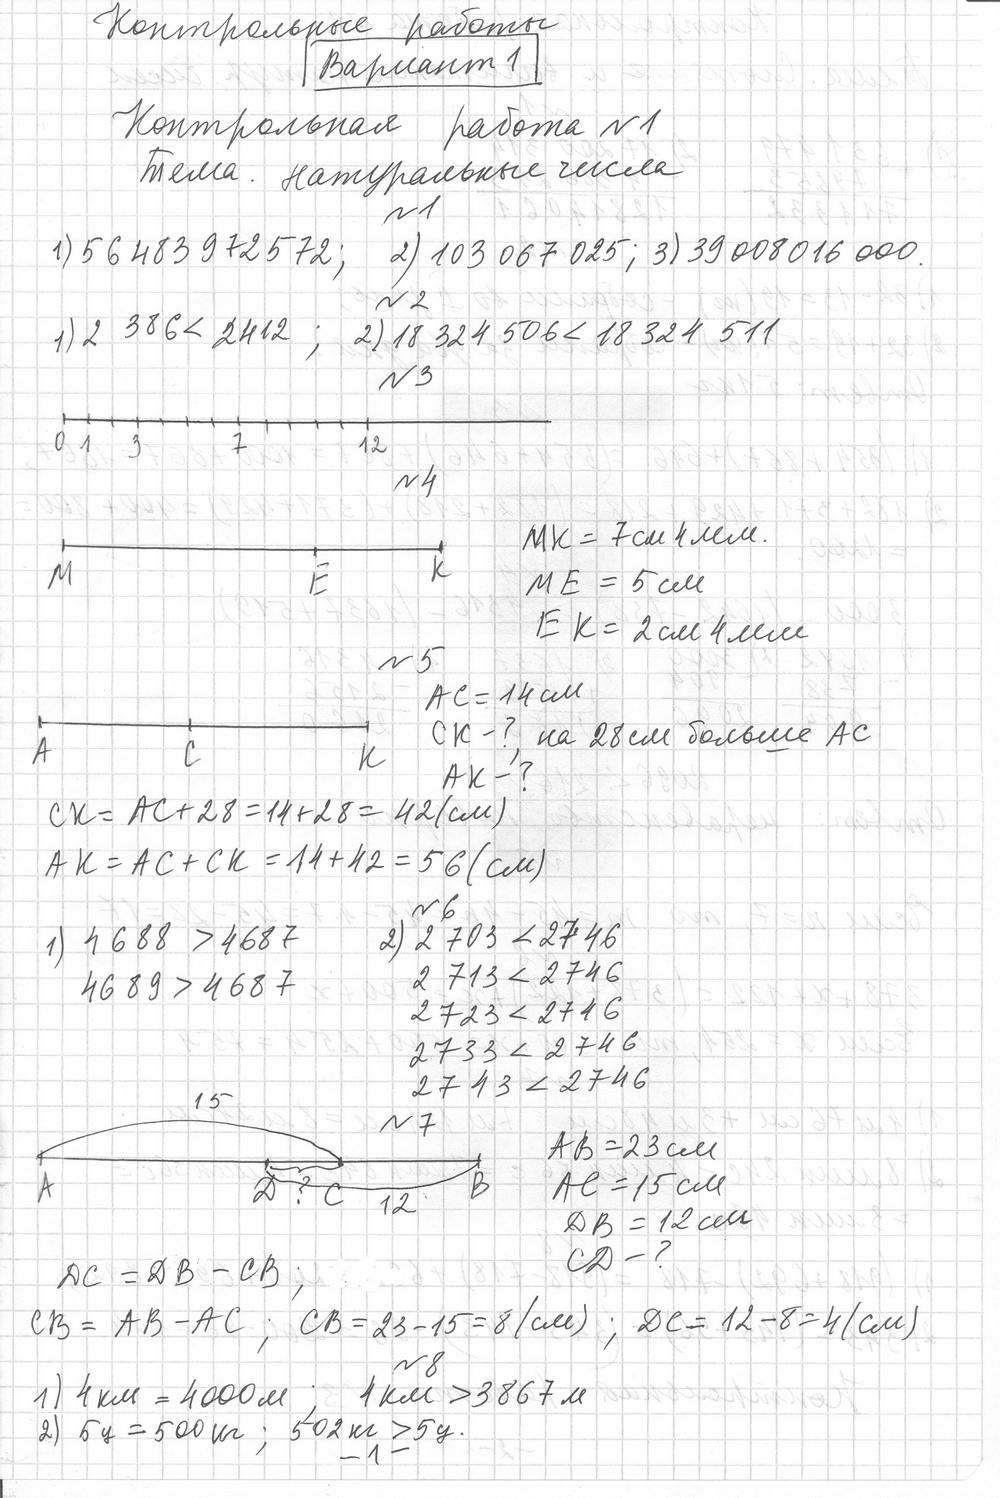 Контрольные работы
Вариант 1
Контрольная работа №1
Тема. Натуральные числа
№1
1) 56 483 972 572; 2) 103 067 025; 3) 39 008 016 000.
№2
1) 2 386 < 2412; 2) 18 324 506 < 18 324 511
№3
0 1 3 7 12
№4
M E K
MK = 7см 4мм.
ME = 5см
EK = 2см 4мм
№5
A C K
AC = 14см
CK - ?, на 28см больше AC
AK - ?
CK = AC + 28 = 14 + 28 = 42 (см)
AK = AC + CK = 14 + 42 = 56 (см)
№6
1) 4688 > 4687
4689 > 4687
2) 2 703 < 2746
2 713 < 2746
2723 < 2746
2733 < 2746
2743 < 2746
№7
15
A D ? C 12 B
AB = 23см
AC = 15см
DB = 12см
CD - ?
DC = DB - CB;
CB = AB - AC; CB = 23 - 15 = 8 (см); DC = 12 - 8 = 4 (см)
№8
1) 4км = 4000м; 4км > 3867м
2) 5ц = 500кг; 502кг > 5ц.
-1-